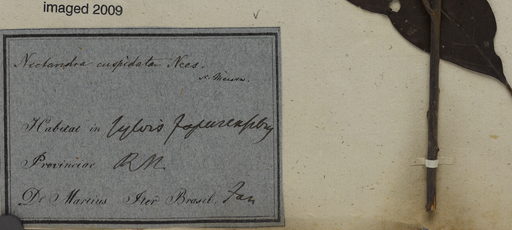 imaged 2009
Nectandra cuspidata Nees.
Habitat in sylvis Japurensib.
Provinciae R. N.
Dr Martius Iter Brasil. Jan